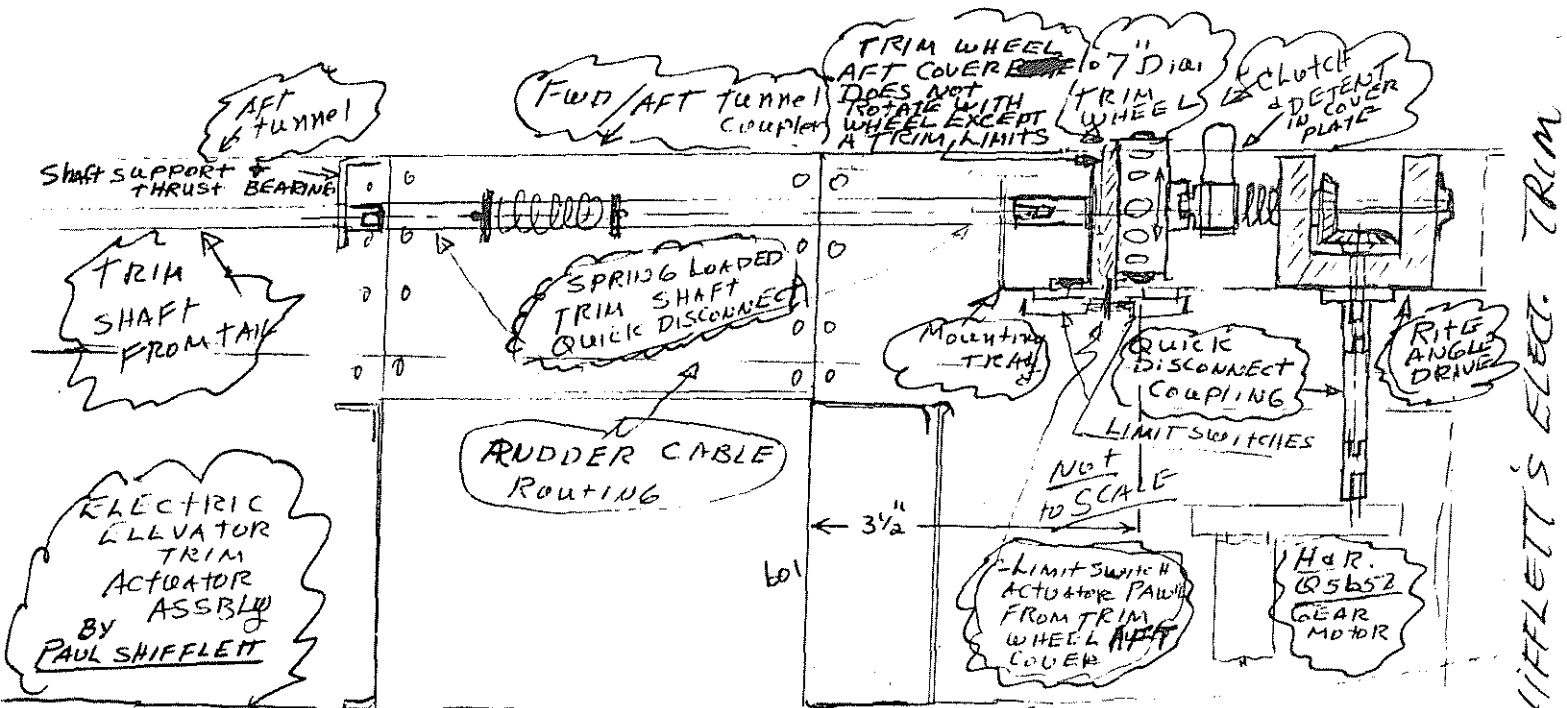 AFT
tunnel
Shaft SUPPORT &
THRUST BEARING
FWD/AFT tunnel
Coupler
TRIM WHEEL
AFT COVER
DOES NOT
ROTATE WITH
WHEEL EXCEPT
A TRIM LIMITS
7" Dia.
TRIM
WHEEL
CLUTCH
& DETENT
IN COVER
PLATE
TRIM
SHAFT
FROM TAIL
SPRING LOADED
TRIM SHAFT
QUICK DISCONNECT
Mounting
TRAY
QUICK
DISCONNECT
COUPLING
RITE
ANGLE
DRIVE
LIMIT SWITCHES
RUDDER CABLE
ROUTING
NOT
to SCALE
3½"
601
ELECTRIC
ELLVATOR
TRIM
ACTUATOR
ASSBLY
BY
PAUL SHIFFLETT
-LIMIT SWITCH
ACTUATOR PAWL
FROM TRIM
WHEEL AFT
COVER
H&R.
Q5652
GEAR
MOTOR
HIFFLETT'S ELECT. TRIM